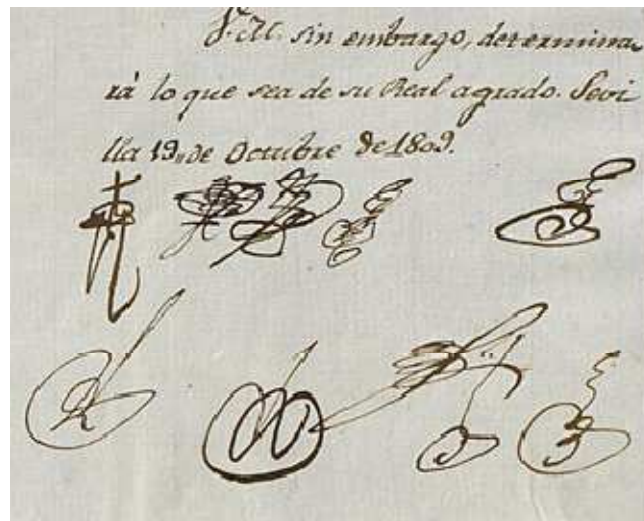 V.M. sin embargo, determina-
rá lo que sea de su Real agrado. Sevi
lla 19,, de Octubre de 1809.